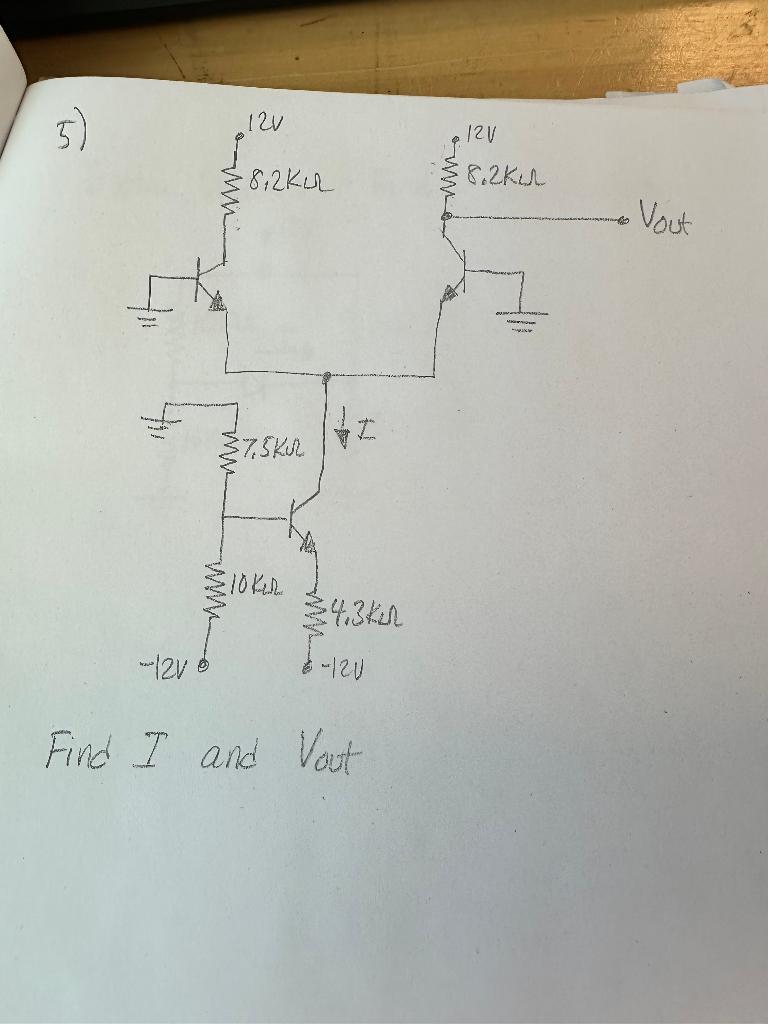 5)
12V
12V
8.2KΩ
8.2KΩ
Vout
I
7.5KΩ
10KΩ
4.3KΩ
-12V
-12V
Find I and Vout